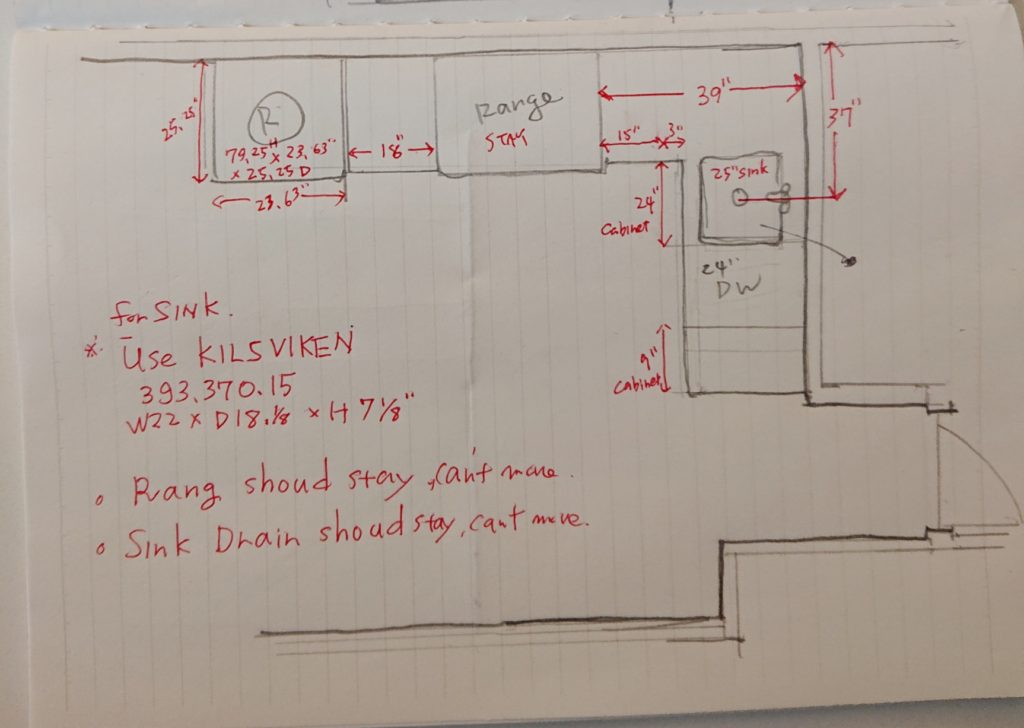 25.25"
R
79.25"H x 23.63"
x 25.25 D
23.63"
18"
Range
STAY
39"
15"
3"
37"
25" sink
24"
Cabinet
24"
DW
9"
Cabinet
for SINK.
* Use KILSVIKEN
393.370.15
W22 x D18.⅛ x H 7⅛"
• Rang shoud stay, can't move.
• Sink Drain shoud stay, cant move.